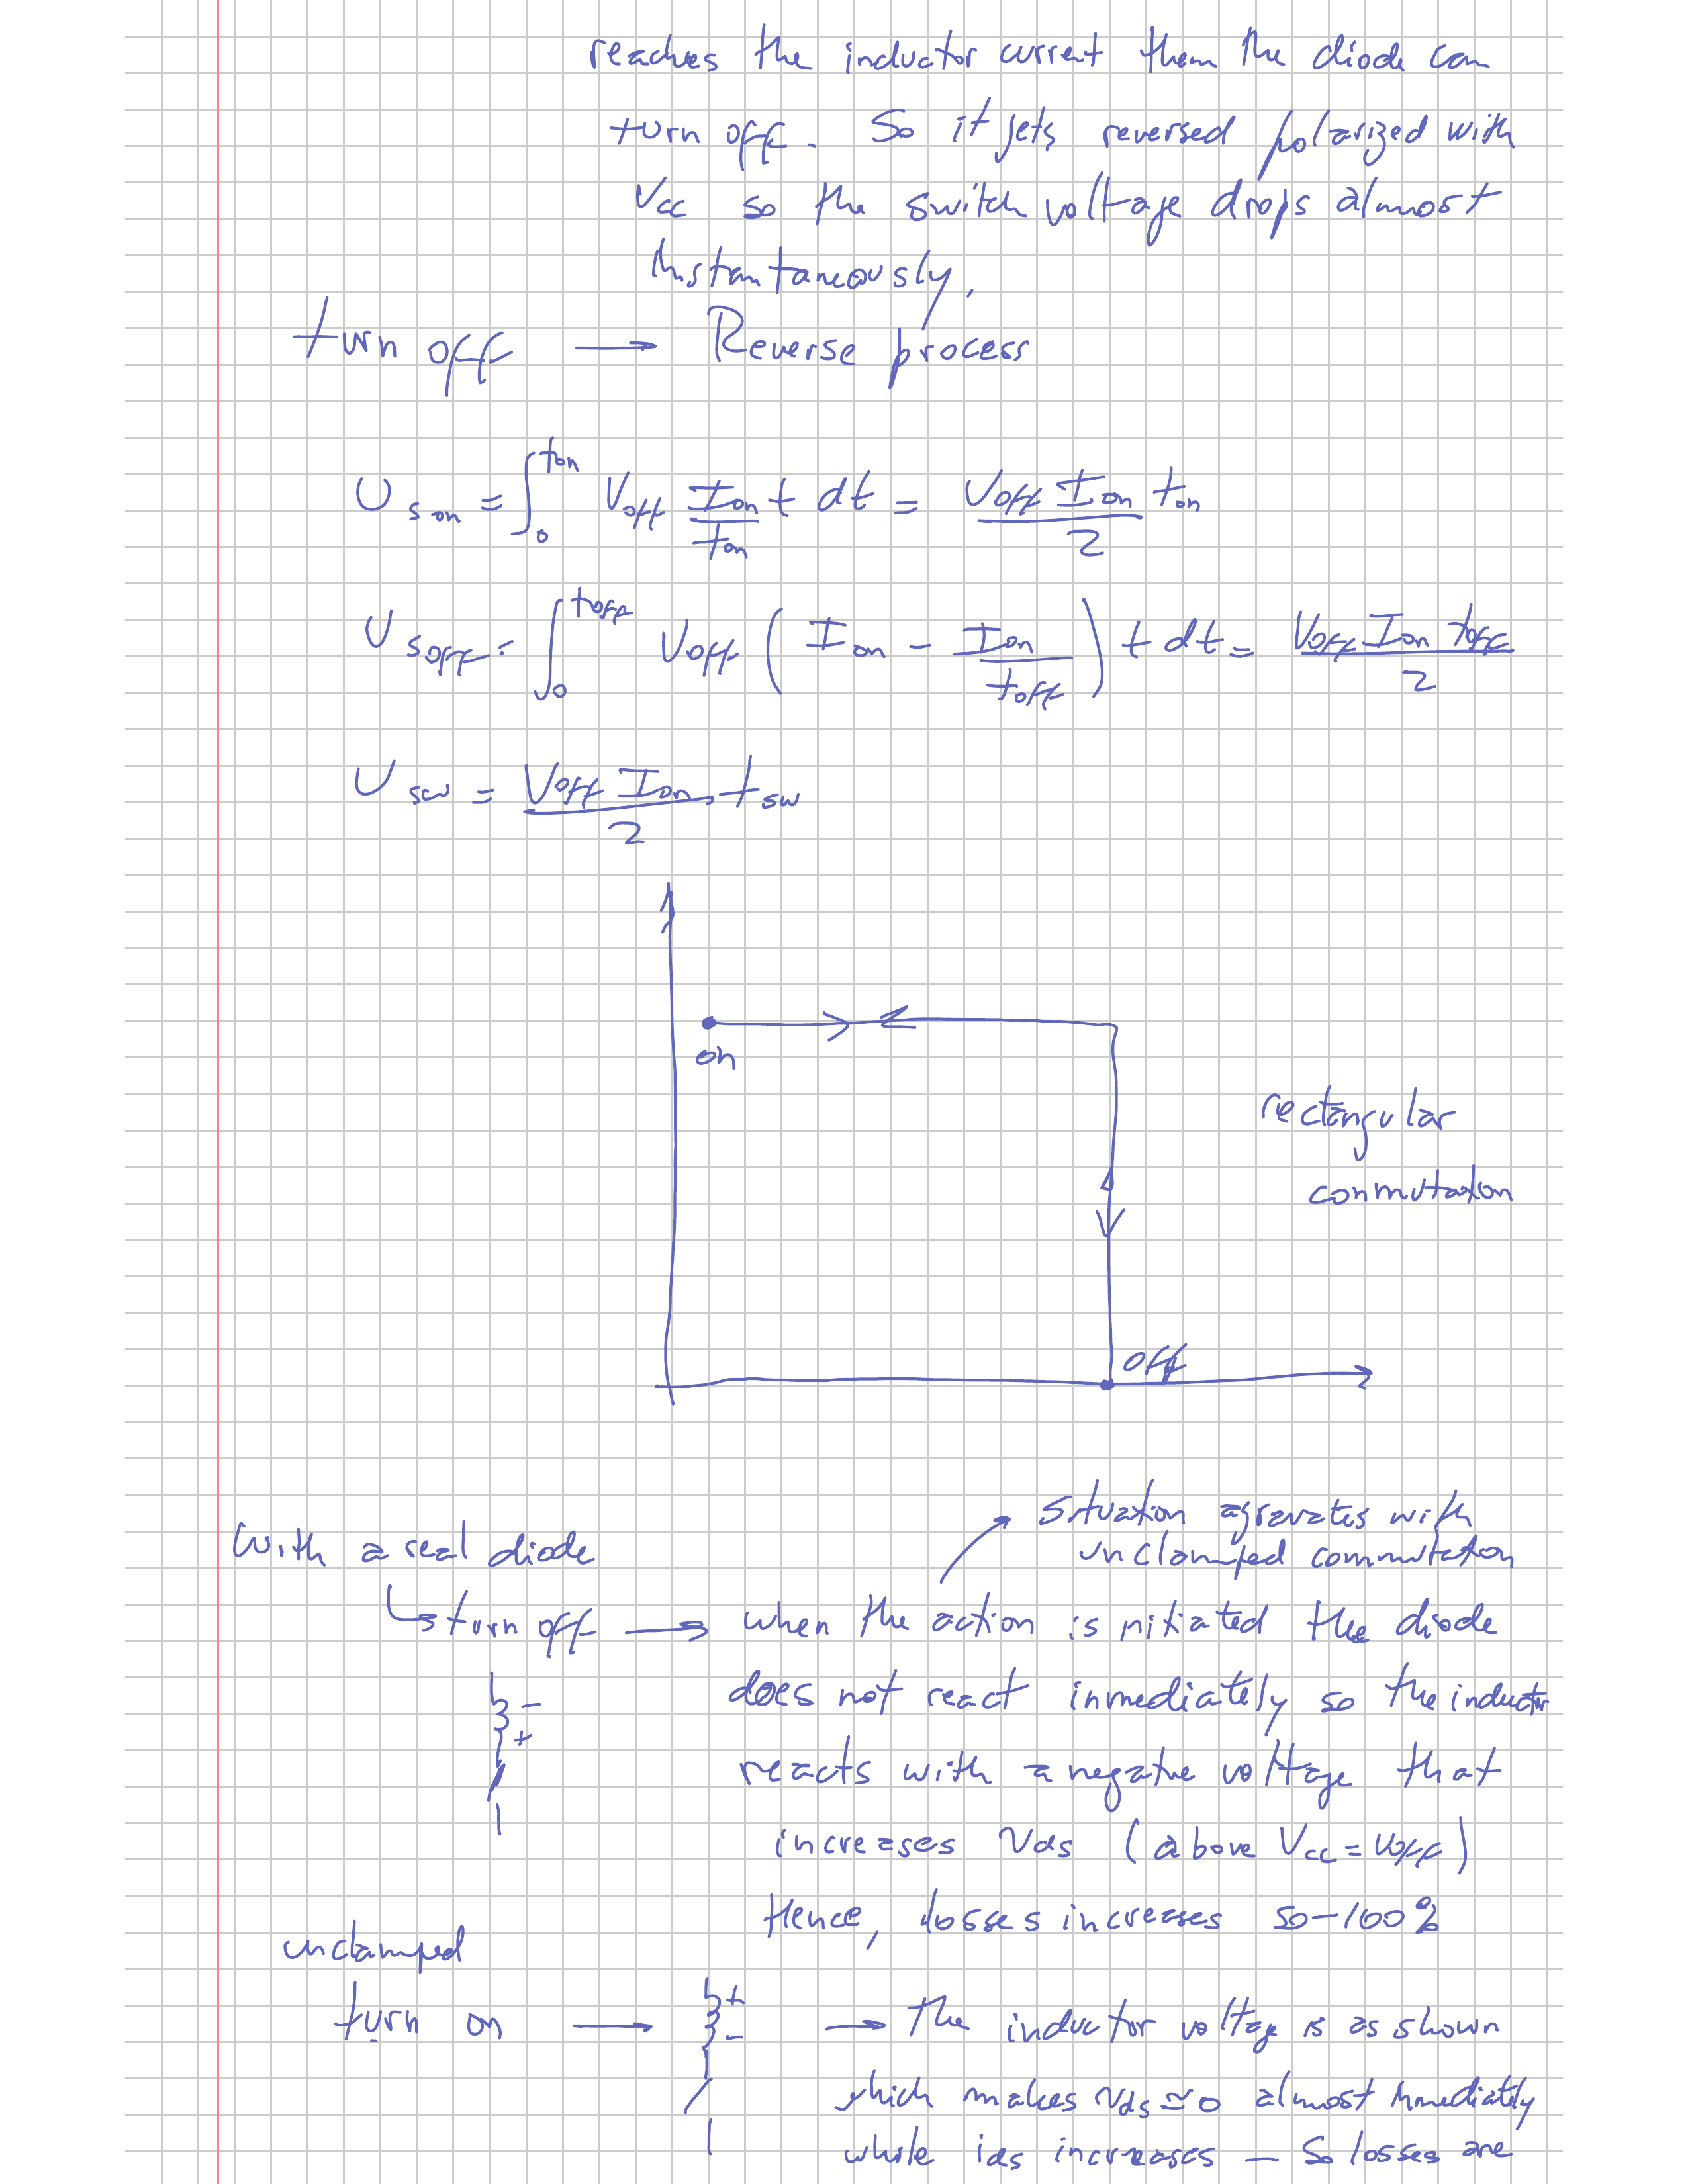 reaches the inductor current them the diode can
turn off. So it gets reversed polarized with
Vcc so the switch voltage drops almost
Instantaneously.
turn off → Reverse process
U_son = ∫_0^ton Voff Ion/ton t dt = Voff Ion/2 ton
U_soff = ∫_0^toff Voff (Ion - Ion/toff) t dt = Voff Ion toff/2
U_sw = Voff Ion/2 tsw
on
rectangular
conmutation
off
situation agravates with
unclamped commutation
With a real diode
↳ turn off → when the action is initiated the diode
- +
does not react inmediately so the inductor
reacts with a negative voltage that
increases Vds (above Vcc = Voff)
Hence, losses increases 50-100%
unclamped
turn on → + - → the inductor voltage is as shown
which makes Vds ≃ 0 almost immediately
while ids increases — So losses are